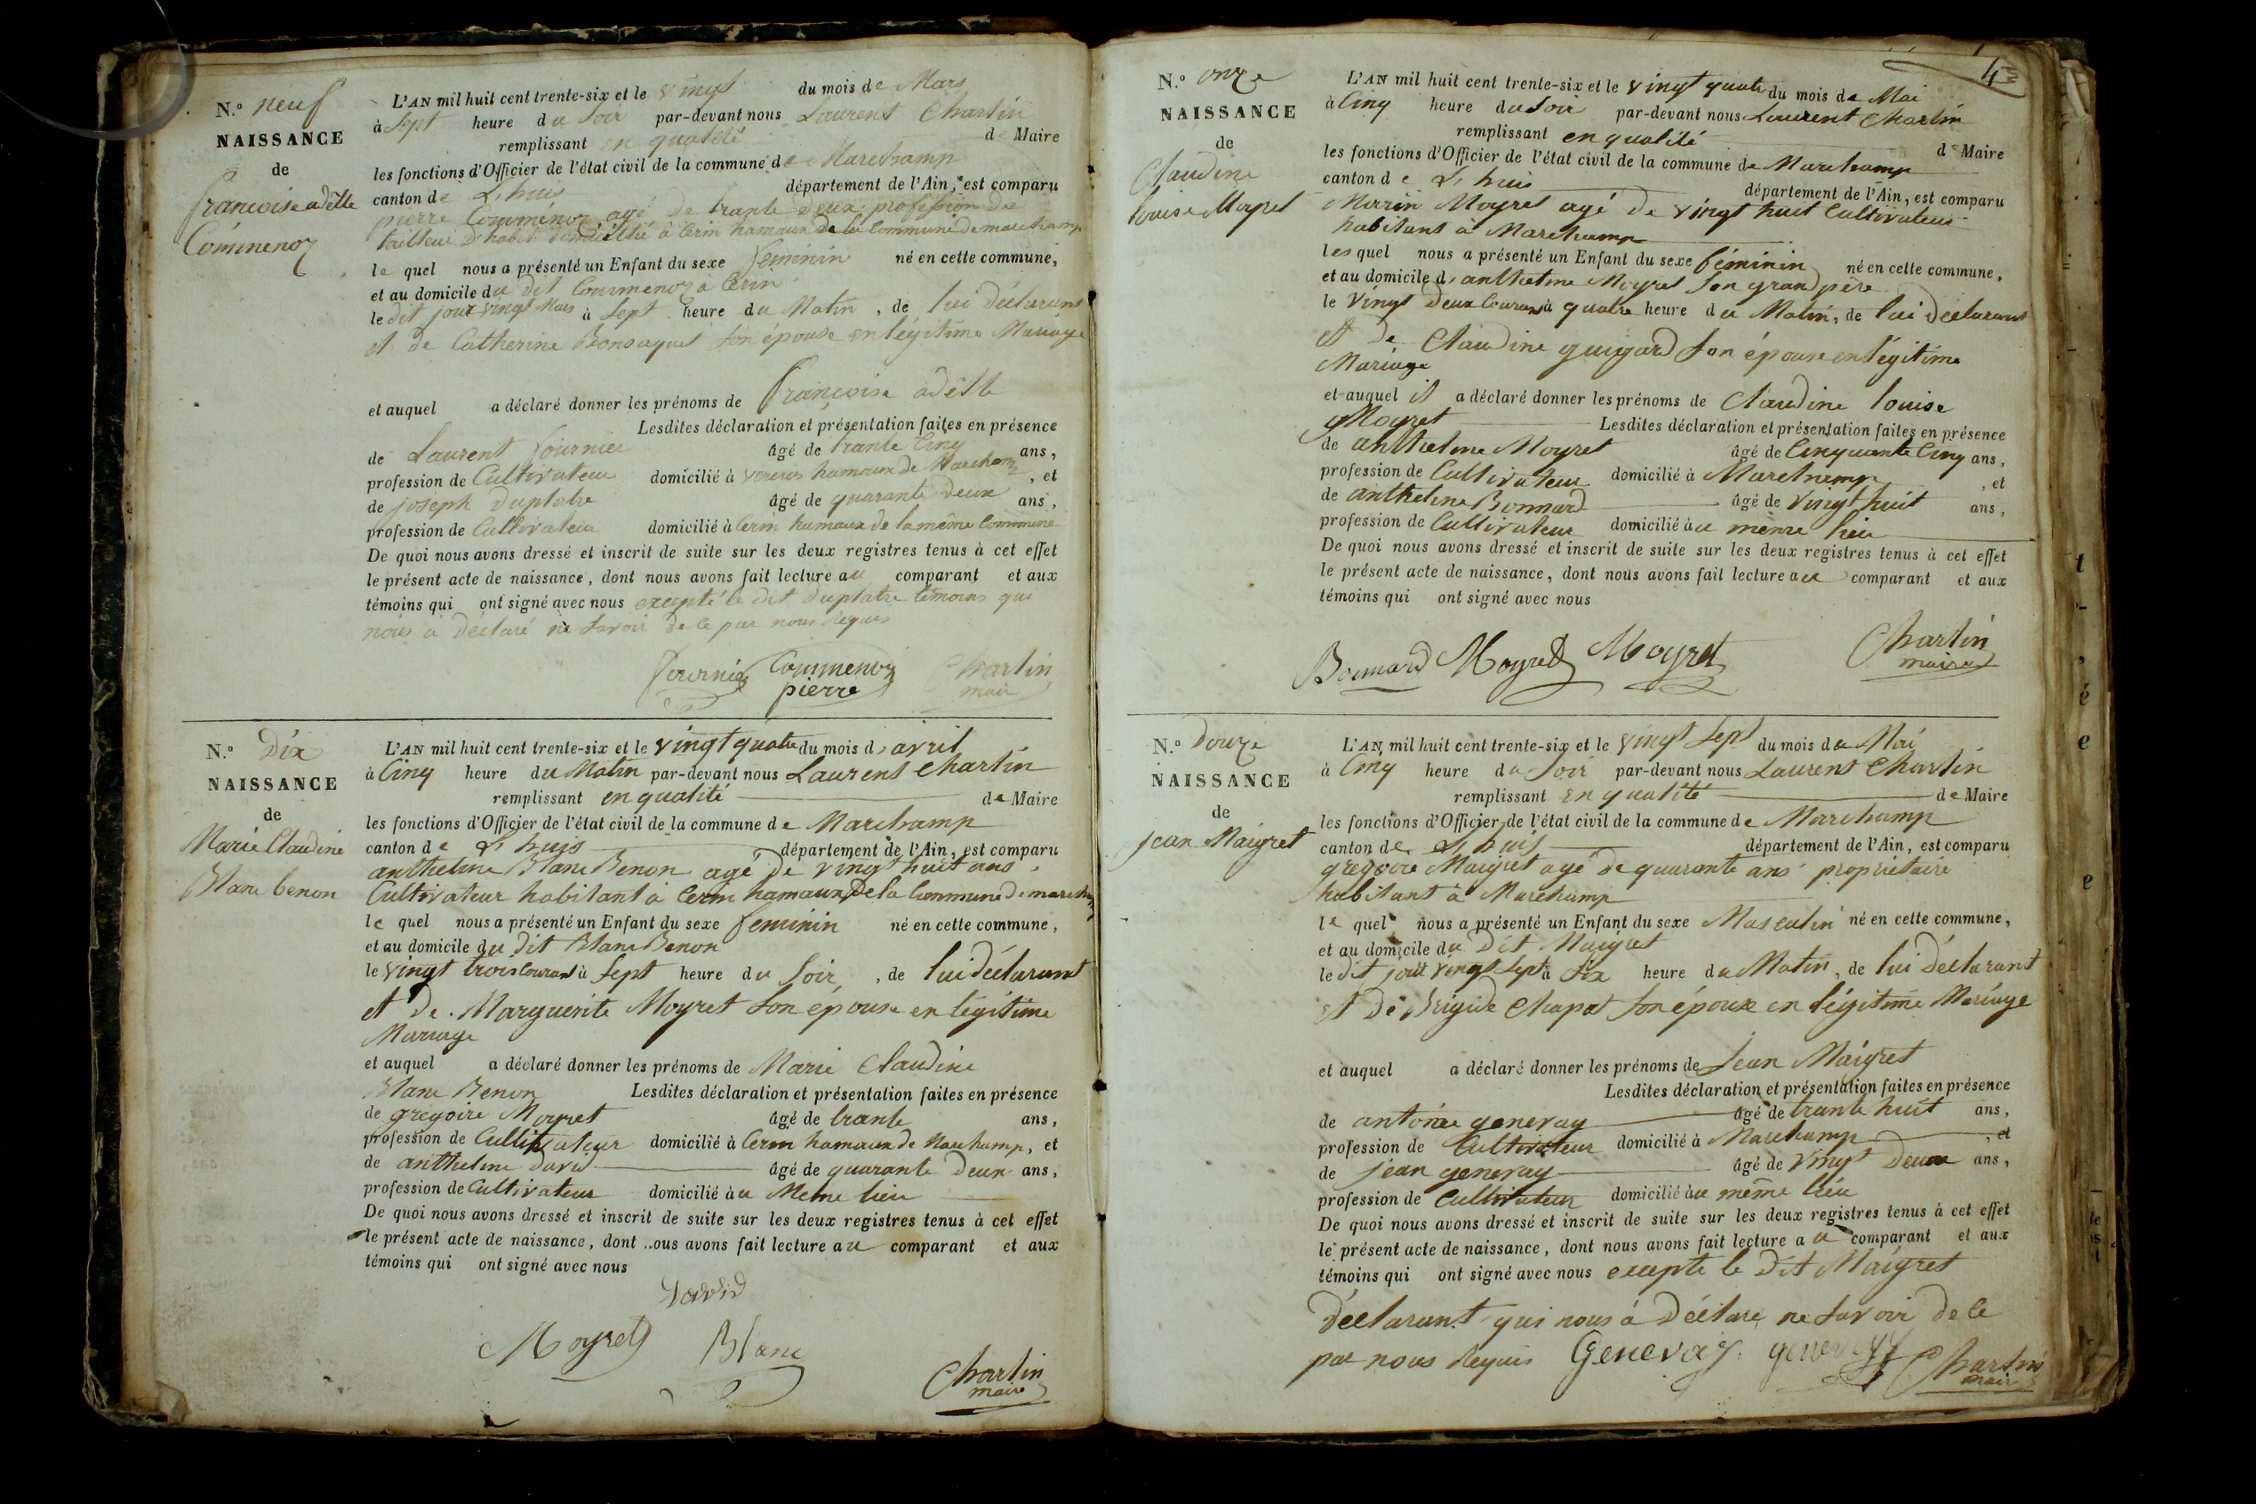 N.º neuf
NAISSANCE
de
francoise adelle
Coumenoz
L'AN mil huit cent trente-six et le vingt du mois de Mars
à Sept heure du Soir par-devant nous Laurent Chartin
remplissant en qualité de Maire
les fonctions d'Officier de l'état civil de la commune de Marchamp
canton de L'huis département de l'Ain, est comparu
pierre Coumenoz agé de trante deux profession de
tailleur d'habit domicillié à Cerin hamaux De la Commune De marchamp
le quel nous a présenté un Enfant du sexe feminin né en cette commune,
et au domicile du dit Coumenoz à Cerin
le dit jour vingt Mars à Sept heure du Matin, de lui déclarant
et de Catherine Son épouse en légitime Mariage
et auquel a déclaré donner les prénoms de francoise adelle
Lesdites déclaration et présentation faites en présence
de Laurent fournier âgé de trante Cinq ans,
profession de Cultivateur domicilié à hamaux de Marchamp, et
de joseph Duplatre âgé de quarante Deux ans,
profession de Cultivateur domicilié à Cerin hamaux de la même Commune
De quoi nous avons dressé et inscrit de suite sur les deux registres tenus à cet effet
le présent acte de naissance, dont nous avons fait lecture au comparant et aux
témoins qui ont signé avec nous excepté le dit Duplatre témoins qui
nous a déclaré ne Savoir de ce par nous Requis
Fournier Coumenoz Chartin
pierre mair
N.º Dix
NAISSANCE
de
Marie Claudine
Blanc benon
L'AN mil huit cent trente-six et le vingt quatre du mois d'avril
à Cinq heure du Matin par-devant nous Laurent Chartin
remplissant en qualité de Maire
les fonctions d'Officier de l'état civil de la commune de Marchamp
canton de L'huis département de l'Ain, est comparu
anthelme Blanc Benon agé de vingt huit ans
Cultivateur habitant à Cerin hamaux De la Commune De marchamp
le quel nous a présenté un Enfant du sexe feminin né en cette commune,
et au domicile du dit Blanc Benon
le vingt trois Courant à Sept heure du Soir, de lui déclarant
et de Marguerite Moyret Son epouse en légitime
Mariage
et auquel a déclaré donner les prénoms de Marie Claudine
Blanc Benon Lesdites déclaration et présentation faites en présence
de gregoire Moyret âgé de trante ans,
profession de Cultivateur domicilié à Cerin hamaux de Marchamp, et
de anthelme David âgé de quarante Deux ans,
profession de Cultivateur domicilié au Meme lieu
De quoi nous avons dressé et inscrit de suite sur les deux registres tenus à cet effet
le présent acte de naissance, dont ..ous avons fait lecture au comparant et aux
témoins qui ont signé avec nous
David
Moyret Blanc
Chartin
maire
4
N.º onze
NAISSANCE
de
Claudine
louise Moyret
L'AN mil huit cent trente-six et le vingt quatre du mois de Mai
à Cinq heure du Soir par-devant nous Laurent Chartin
remplissant en qualité de Maire
les fonctions d'Officier de l'état civil de la commune de Marchamp
canton de L'huis département de l'Ain, est comparu
Moyret agé de vingt huit Cultivateur
habitant à Marchamp
les quel nous a présenté un Enfant du sexe féminin né en cette commune,
et au domicile d'anthelme Moyret Son grand père
le Vingt Deux Courant à quatre heure du Matin, de lui déclarant
et de Claudine guigard Son épouse en légitime
Mariage
et auquel il a déclaré donner les prénoms de Claudine louise
Moyret Lesdites déclaration et présentation faites en présence
de anthelme Moyret âgé de Cinquante Cinq ans,
profession de Cultivateur domicilié à Marchamp, et
de anthelme Bonnard âgé de Vingt huit ans,
profession de Cultivateur domicilié au même lieu
De quoi nous avons dressé et inscrit de suite sur les deux registres tenus à cet effet
le présent acte de naissance, dont nous avons fait lecture au comparant et aux
témoins qui ont signé avec nous
Bonnard Moyret Moyret Chartin
maire
N.º Douze
NAISSANCE
de
jean Maigret
L'AN mil huit cent trente-six et le vingt Sept du mois de Mai
à Cinq heure du Soir par-devant nous Laurent Chartin
remplissant en qualité de Maire
les fonctions d'Officier de l'état civil de la commune de Marchamp
canton de L'huis département de l'Ain, est comparu
gregoire Maigret agé de quarante ans propriétaire
habitant à Marchamp
le quel nous a présenté un Enfant du sexe Masculin né en cette commune,
et au domicile du Dit Maigret
le dit jour vingt Sept à Six heure du Matin, de lui déclarant
et De Brigide Chapot Son épouse en légitime Mariage
et auquel a déclaré donner les prénoms de Jean Maigret
Lesdites déclaration et présentation faites en présence
de antoine genevay âgé de trante huit ans,
profession de Cultivateur domicilié à Marchamp, et
de jean genevay âgé de Vingt Deux ans,
profession de Cultivateur domicilié au même lieu
De quoi nous avons dressé et inscrit de suite sur les deux registres tenus à cet effet
le présent acte de naissance, dont nous avons fait lecture au comparant et aux
témoins qui ont signé avec nous excepté le Dit Maigret
Déclarant qui nous a Déclare ne Savoir de ce
par nous Requis Genevay genevay Chartin
mair